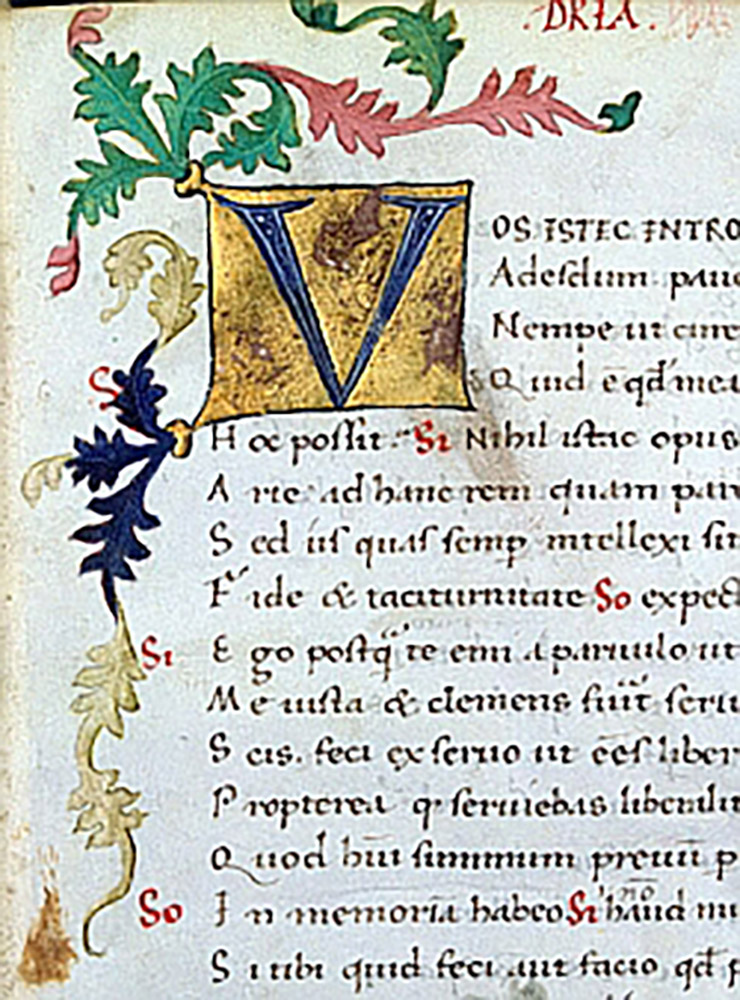 .DRIA.
VOS ISTEC INTRO
Adesdum pauc
Nempe ut cure
So Quid e qd mea
Hoc possit. Si Nihil istac opus
Arte ad hanc rem quam par
Sed iis quas semp intellexi sit
Fide & taciturnitate So expect
Si Ego postq te emi aparuulo ut
Me iusta & clemens fuit seru
Scis. feci ex seruo ut ees liber
Propterea q seruiebas liberalit
Quod hui summum preuii p
So In memoria habeo Si haud mu
Si tibi quid feci aut facio qd p